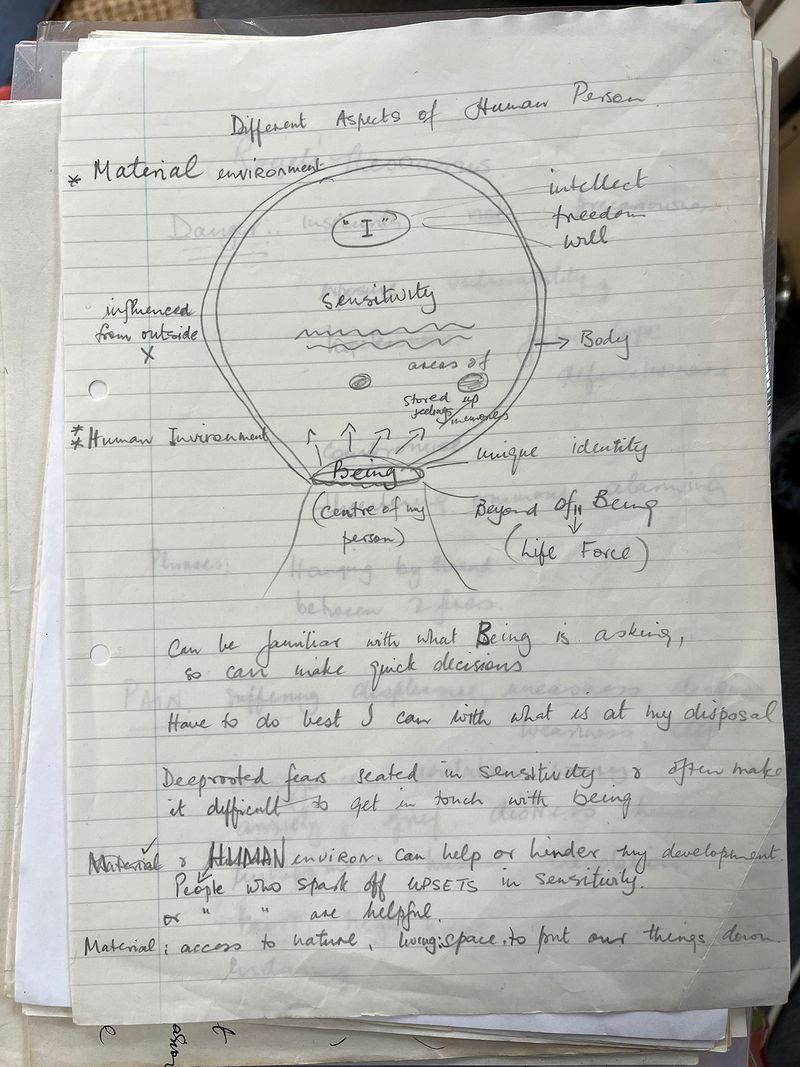 Different Aspects of Human Person
* Material environment
"I"
intellect
freedom
will
sensitivity
influenced
from outside
X
→ Body
areas of
stored up
feelings
memories
** Human Invironment
Being
unique identity
(centre of my
person)
Beyond Of Being
(Life Force)
Can be familiar with what Being is asking,
so can make quick decisions
Have to do best I can with what is at my disposal
Deeprooted fears seated in sensitivity & often make
it difficult to get in touch with being
Material & HUMAN environ. can help or hinder my development.
People who spark off UPSETS in sensitivity.
or " " are helpful.
Material: access to nature, living space, to put our things down.